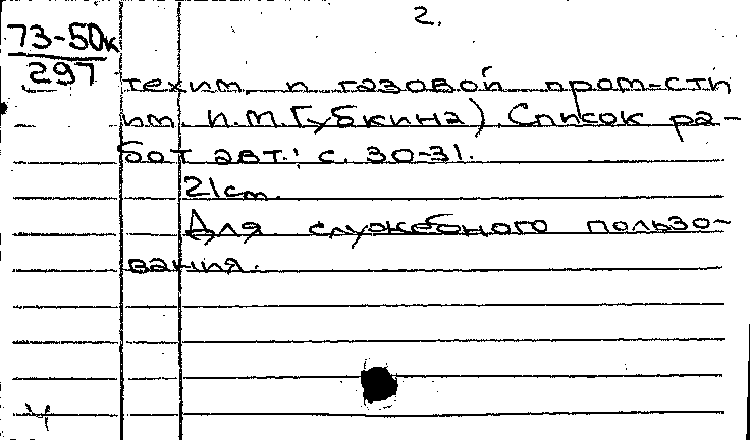 2.
73-50к
297
техим. и газовой пром-сти
им. И.М. Губкина). Список ра-
бот авт.: с. 30-31.
21 cm.
Для служебного пользо-
вания.